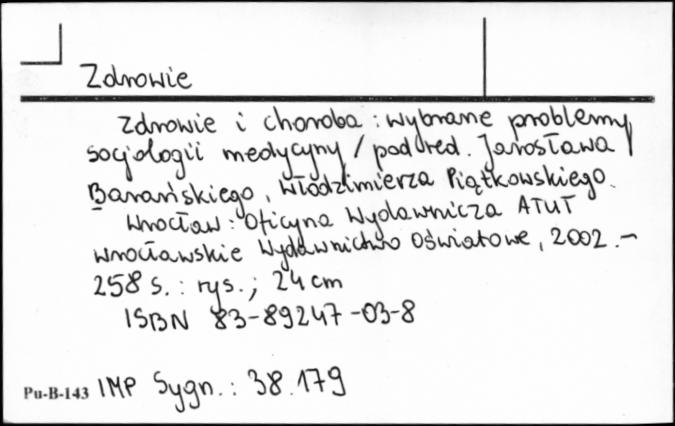 Zdrowie
Zdrowie i choroba : wybrane problemy
socjologii medycyny / pod red. Jarosława
Barańskiego, Włodzimierza Piątkowskiego.
Wrocław : Oficyna Wydawnicza ATUT
Wrocławskie Wydawnictwo Oświatowe, 2002. –
258 s. : rys. ; 24 cm
ISBN 83-89247-03-8
Pu-B-143 IMP Sygn. : 38.179